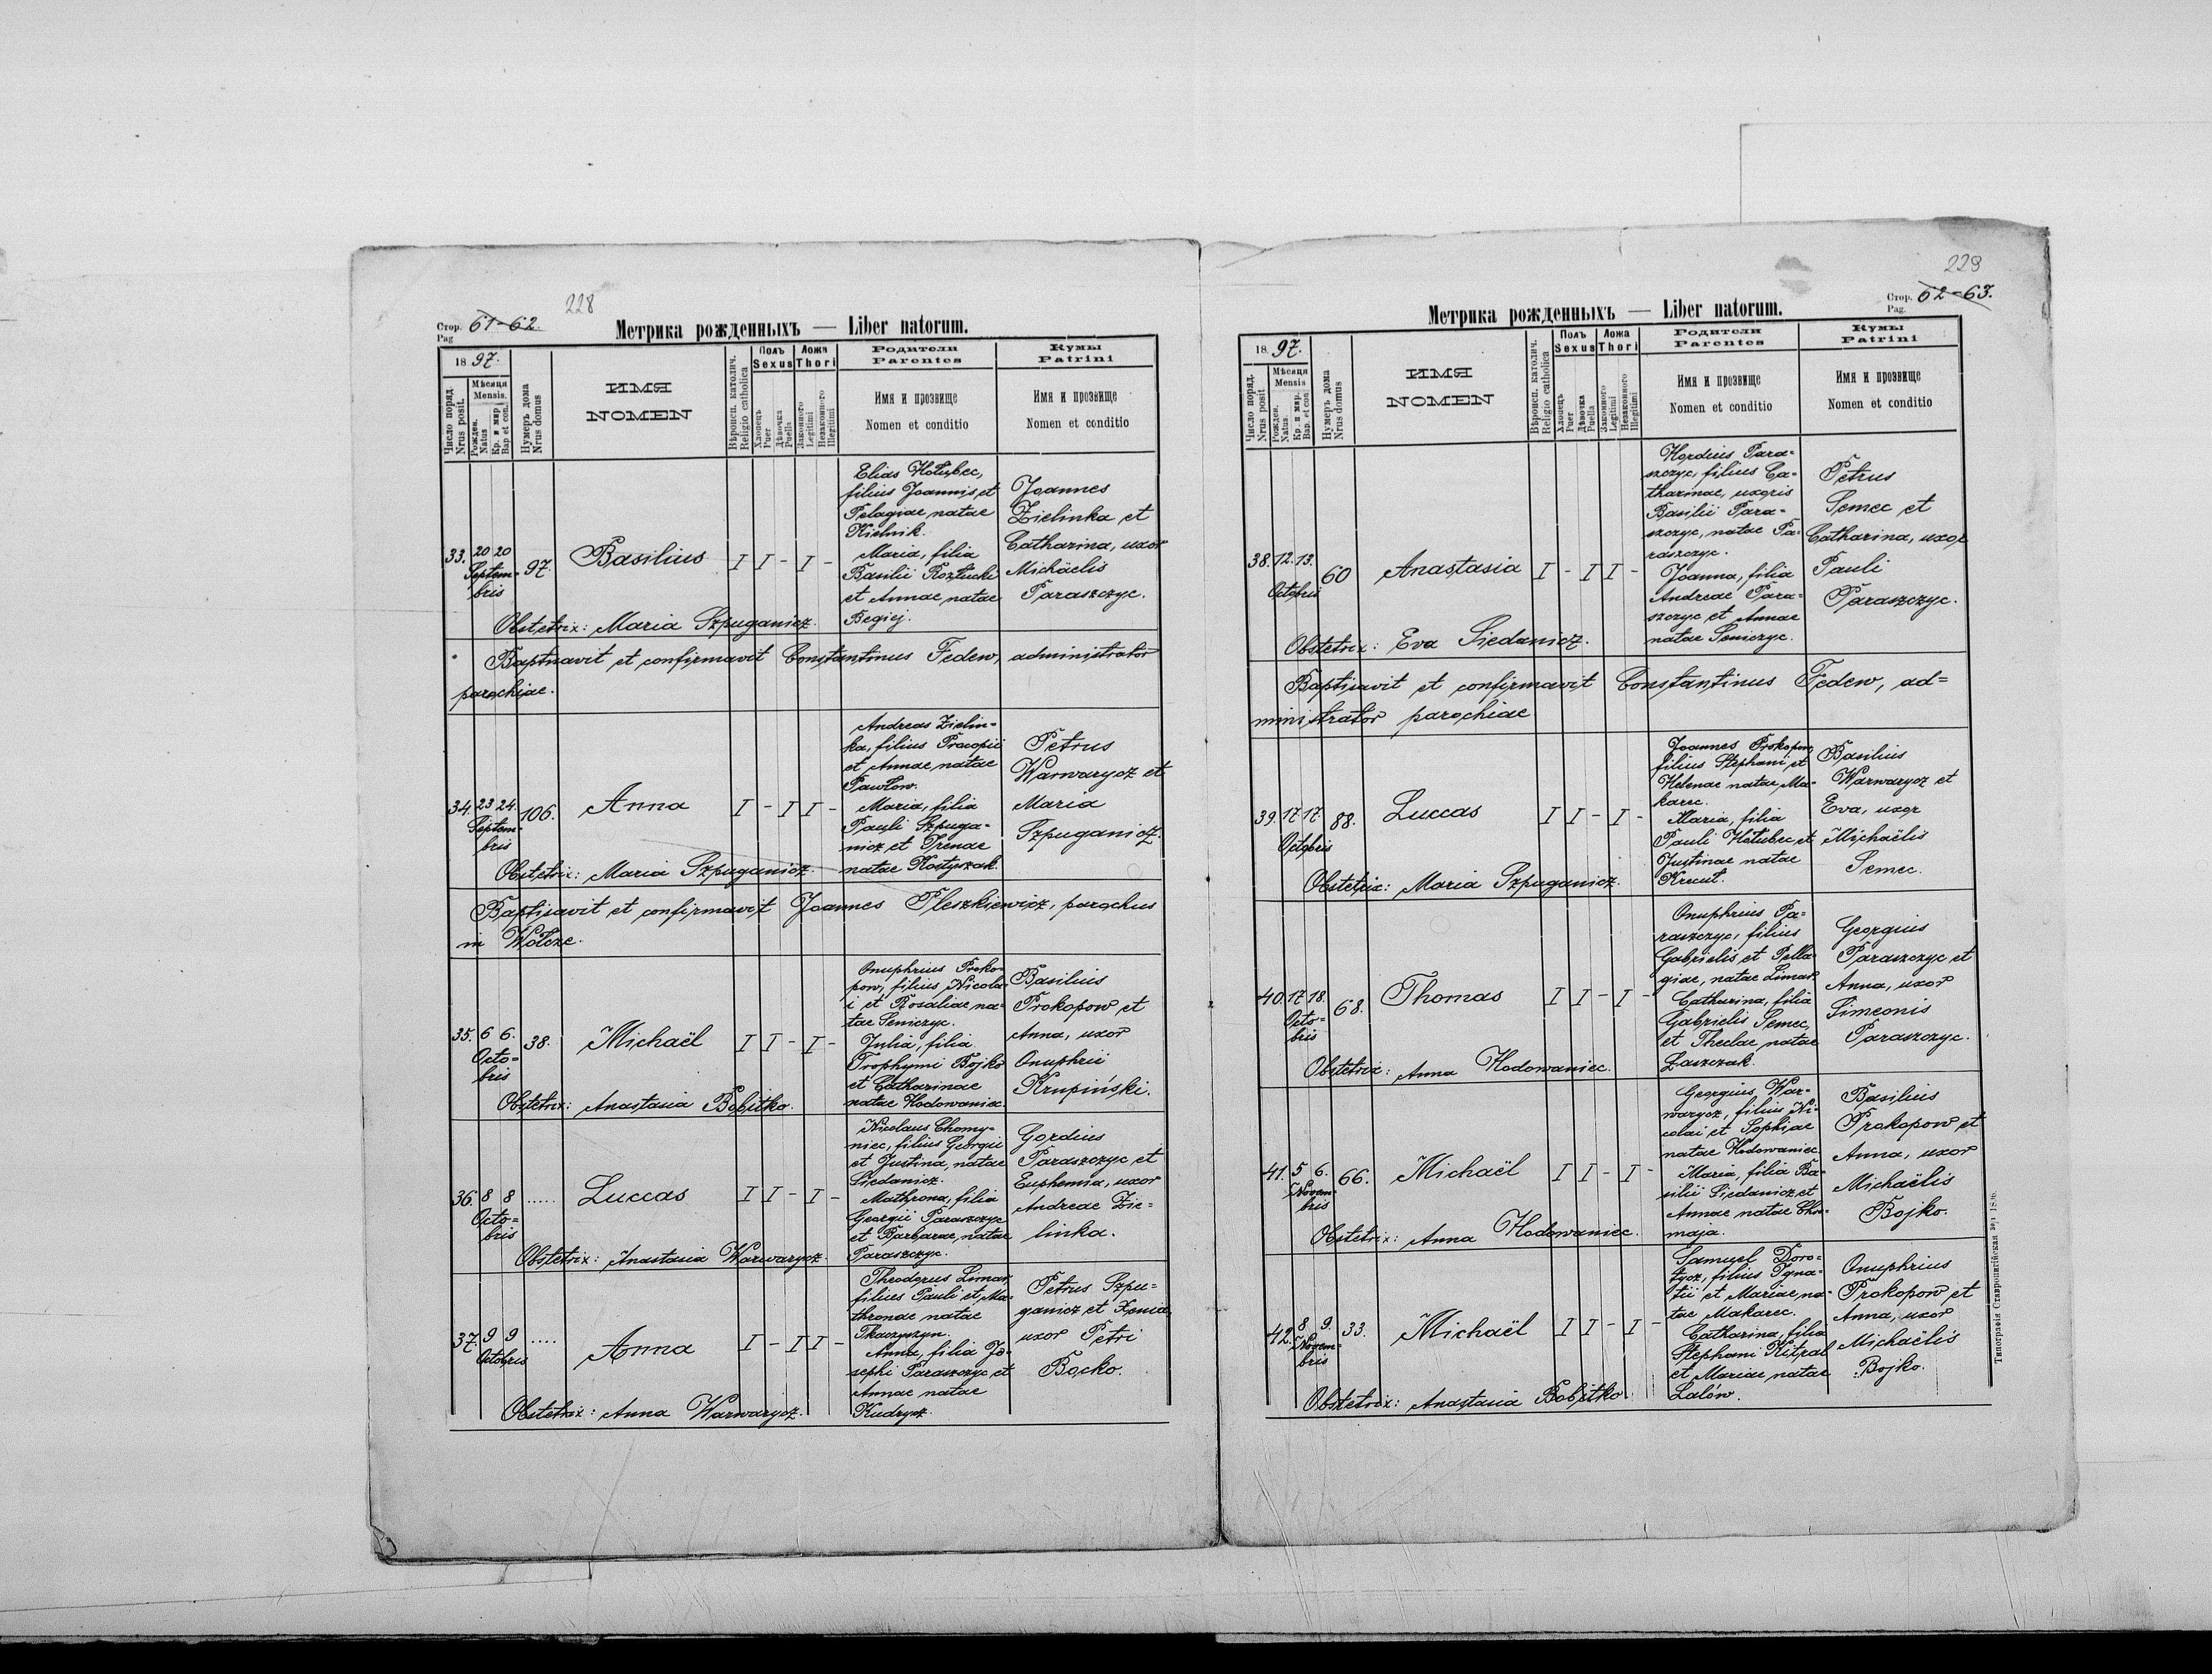 228
Стор. 61-62.
Pag
Метрика рожденныхъ — Liber natorum.
18 97.
Число поряд.
Nrus posit.
Мѣсяця
Mensis.
Рожден.
Natus
Кр. и мир
Bap et con.
Нумеръ дома
Nrus domus
ИМЯ
NOMEN
Вѣроисп. католич.
Religio catholica
Полъ
Sexus
Хлопецъ
Puer
Дѣвочка
Puella
Ложа
Thori
Законного
Legitimi
Незаконного
Illegitimi
Родители
Parentes
Имя и прозвище
Nomen et conditio
Кумы
Patrini
Имя и прозвище
Nomen et conditio
33. 20 20
Septem-
bris
97.
Basilius
I I - I -
Elias Hołubec,
filius Joannis et
Pelagiae natae
Kielnik.
Maria, filia
Basilii Rozłucki
et Annae natae
Begiej.
Joannes
Zielinka et
Catharina, uxor
Michäelis
Paraszczyc.
Obstetrix: Maria Szpuganicz.
Baptisavit et confirmavit Constantinus Fedew, administrator
parochiae.
34. 23 24.
Septem-
bris
106.
Anna
I - I I -
Andreas Zielin=
ka, filius Procopii
et Annae natae
Pawłow.
Maria, filia
Pauli Szpuga=
nicz et Irenae
natae Kostyszak.
Petrus
Warwarycz et
Maria
Szpuganicz.
Obstetrix: Maria Szpuganicz.
Baptisavit et confirmavit Joannes Pleszkiewicz, parochus
in Wołcze.
35. 6 6.
Octo=
bris
38.
Michaël
I I - I -
Onuphrius Proko=
pow, filius Nicola=
i et Rosaliae na=
tae Seniczyc.
Julia, filia
Trophymi Bojko
et Catharinae
natae Hodowaniec.
Basilius
Prokopow et
Anna, uxor
Onuphrii
Krupiński.
Obstetrix: Anastasia Bobitko.
36. 8 8
Octo=
bris
.....
Luccas
I I - I -
Nicolaus Chomy=
niec, filius Georgii
et Justina, natae
Siedanicz.
Mathrona, filia
Georgii Paraszczyc
et Barbarae, natae
Paraszczyc.
Gordius
Paraszczyc et
Euphemia, uxor
Andreae Zie=
linka.
Obstetrix: Anastasia Warwarycz.
37. 9 9
Octobris
....
Anna
I - I I -
Theodorus Limar,
filius Pauli et Ma=
thronae natae
Tkaczyszyn.
Anna, filia Jo=
sephi Paraszczyc et
Annae natae
Kudrycz.
Petrus Szpu=
ganicz et Xenia,
uxor Petri
Bocko.
Obstetrix: Anna Warwarycz.
229
Стор. 62-63.
Pag.
Метрика рожденныхъ — Liber natorum.
18. 97.
Число поряд.
Nrus posit
Мѣсяця
Mensis
Рожден.
Natus.
Кр. и мир.
Bap. et con.
Нумеръ дома
Nrus domus
ИМЯ
NOMEN
Вѣроисп. католич.
Religio catholica
Полъ
Sexus
Хлопецъ
Puer
Дѣвочка
Puella
Ложа
Thori
Законного
Legitimi
Незаконного
Illegitimi
Родители
Parentes
Имя и прозвище
Nomen et conditio
Кумы
Patrini
Имя и прозвище
Nomen et conditio
38. 12. 13.
Octobris
60
Anastasia
I - I I -
Hordius Para=
szczyc, filius Ca=
tharinae, uxoris
Basilii Para=
szczyc, natae Pa=
raszczyc.
Joanna, filia
Andreae Para=
szczyc et Annae
natae Seniczyc.
Petrus
Semec et
Catharina, uxor
Pauli
Paraszczyc.
Obstetrix: Eva Siedanicz.
Baptisavit et confirmavit Constantinus Fedew, ad=
ministrator parochiae
39. 17 17.
Octobris
88.
Luccas
I I - I -
Joannes Prokopow,
filius Stephani et
Helenae natae, Ma=
karec.
Maria, filia
Pauli Hołubec et
Justinae natae
Krecut.
Basilius
Warwarycz et
Eva, uxor
Michaëlis
Semec.
Obstetrix: Maria Szpuganicz.
40. 17 18.
Octo=
bris
68.
Thomas
I I - I -
Onuphrius Pa=
raszczyc, filius
Gabrielis et Pella=
giae, natae Limar.
Catharina, filia
Gabrielis Semec,
et Theclae natae
Łaszczak.
Georgius
Paraszczyc et
Anna, uxor
Simeonis
Paraszczyc.
Obstetrix: Anna Hodowaniec.
41. 5 6.
Novem=
bris
66.
Michaël
I I - I -
Georgius War=
warycz, filius Ni=
colai et Sophiae
natae Hodowaniec.
Maria, filia Ba=
silii Siedanicz et
Annae natae Cho=
maja.
Basilius
Prokopow et
Anna, uxor
Michaëlis
Bojko.
Obstetrix: Anna Hodowaniec.
42. 8 9.
Novem=
bris
33.
Michaël
I I - I -
Samuel Doro=
tycz, filius Igna=
tii et Mariae na=
tae Makarec.
Catharina, filia
Stephani Kitral
et Mariae natae
Lalów.
Onuphrius
Prokopow et
Anna, uxor
Michaëlis
Bojko.
Obstetrix: Anastasia Bobitko.
Типографія Ставропигійская